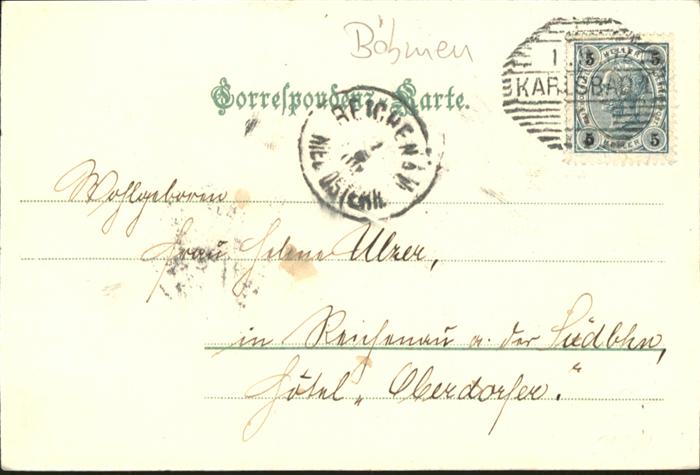 Böhmen
1
KARLSBAD
5 HELLER 5
5 HELLER 5
Correspondenz-Karte.
REICHENAU
NIED. ÖSTERR.
Wohlgeboren
Frau Helene Ulzer,
in Reichenau a. der Südbhn,
Hôtel „Oberdorfer."